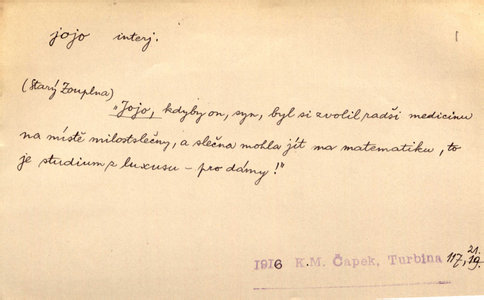 jojo interj.
(Starý Zouplna)
"Jojo, kdyby on, syn, byl si zvolil radši medicinu
na místě milostslečny, a slečna mohla jít na matematiku, to
je studium z luxusu – pro dámy!"
1916 K.M. Čapek, Turbina 117, 21.
19.